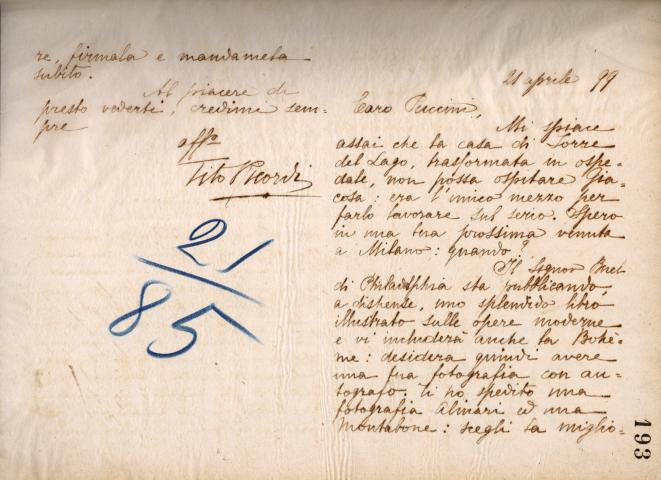 21 aprile 99
Caro Puccini,
Mi spiace
assai che la casa di Torre
del Lago, trasformata in ospe=
dale, non possa ospitare Gia=
cosa: era l'unico mezzo per
farlo lavorare sul serio. Spero
in una tua prossima venuta
a Milano: quando?
Il Signor
di Philadelphia sta pubblicando,
a dispense, uno splendido libro
illustrato sulle opere moderne
e vi includerà anche la Bohè=
me: desidera quindi avere
una tua fotografia con au=
tografo. Ti ho spedito una
fotografia Alinari ed una
Montabone: scegli la miglio=
re, firmala e mandamela
subito.
Al piacere di
presto vederti, credimi sem=
pre
affo
Tito Ricordi
21/85
193